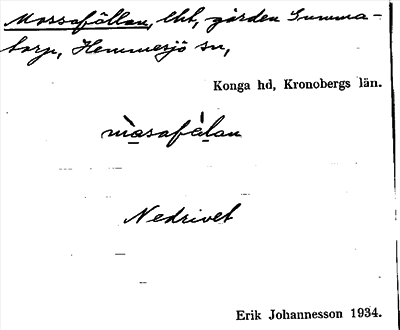 Mossafällan, lht, gården Gumma-
torp, Hemmesjö sn,
Konga hd, Kronobergs län.
màsafàlan
Nedrivet
Erik Johannesson 1934.